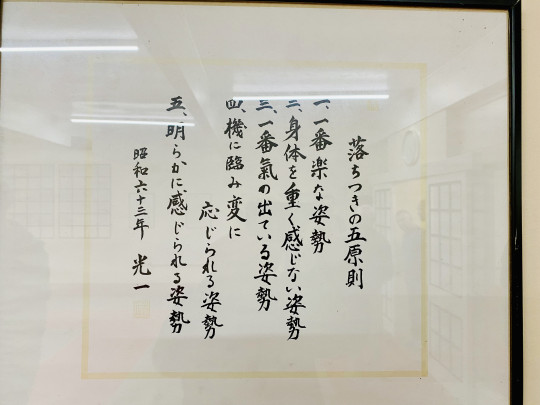 落ちつきの五原則
一、一番楽な姿勢
二、身体を重く感じない姿勢
三、一番氣の出ている姿勢
四、機に臨み変に
応じられる姿勢
五、明らかに感じられる姿勢
昭和六十三年 光一